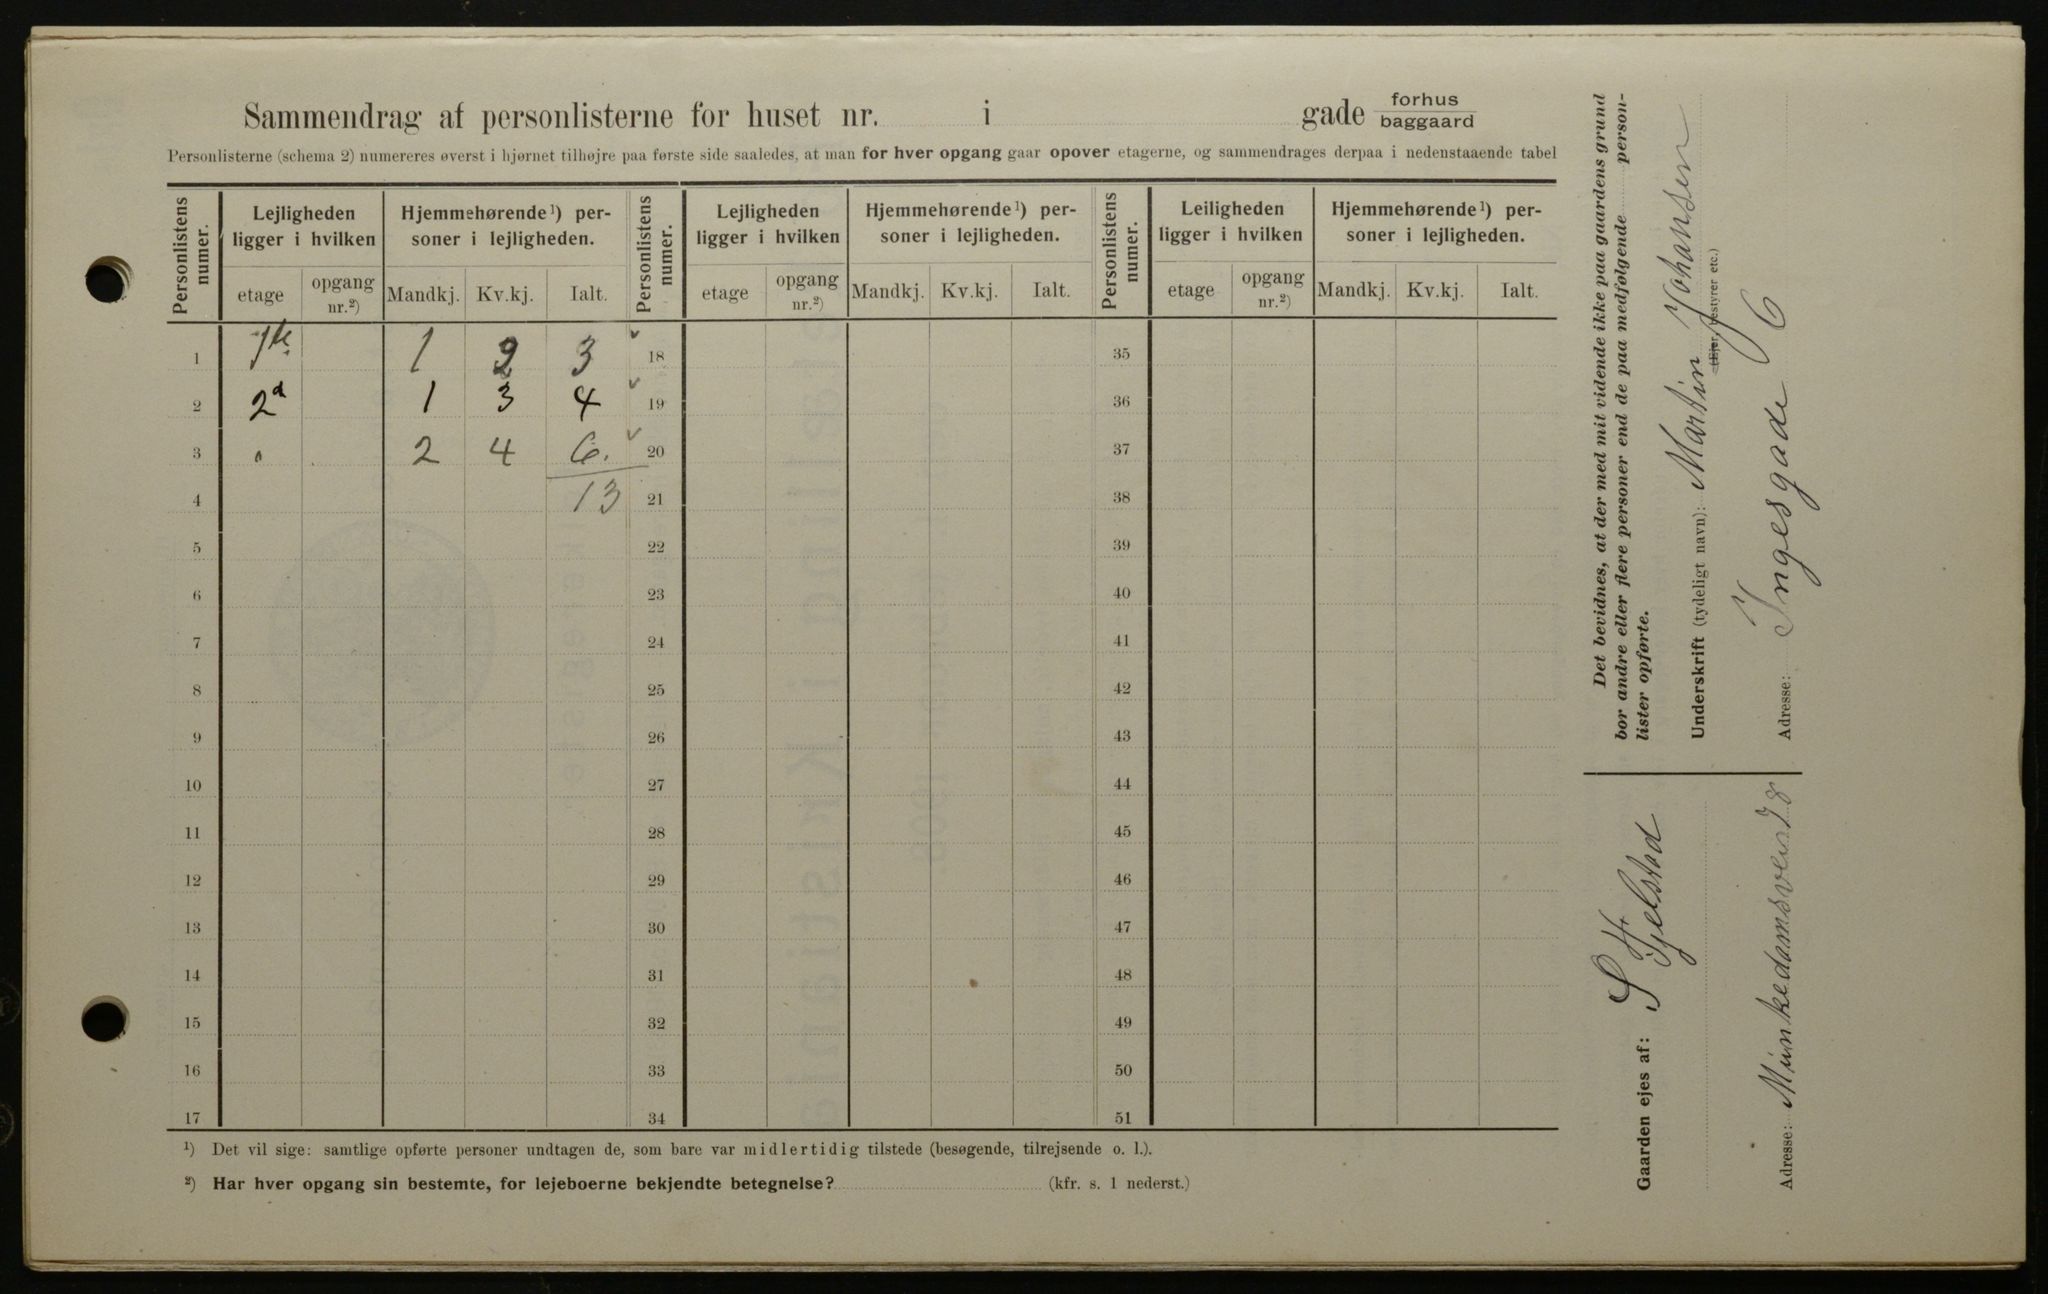 Sammendrag af personlisterne for huset nr. i gade forhus baggaard
Personlisterne (schema 2) numereres øverst i hjørnet tilhøjre paa første side saaledes, at man for hver opgang gaar opover etagerne, og sammendrages derpaa i nedenstaaende tabel
Personlistens numer. Lejligheden ligger i hvilken Hjemmehørende¹) personer i lejligheden. Personlistens numer. Lejligheden ligger i hvilken Hjemmehørende¹) personer i lejligheden. Personlistens numer. Leiligheden ligger i hvilken Hjemmehørende¹) personer i lejligheden.
etage opgang nr.²) Mandkj. Kv.kj. Ialt. etage opgang nr.²) Mandkj. Kv.kj. Ialt. etage opgang nr.²) Mandkj. Kv.kj. Ialt.
1 1ste 1 2 3 18 35
2 2d 1 3 4 19 36
3 " 2 4 6. 20 37
4 13 21 38
5 22 39
6 23 40
7 24 41
8 25 42
9 26 43
10 27 44
11 28 45
12 29 46
13 30 47
14 31 48
15 32 49
16 33 50
17 34 51
¹) Det vil sige: samtlige opførte personer undtagen de, som bare var midlertidig tilstede (besøgende, tilrejsende o. l.).
²) Har hver opgang sin bestemte, for lejeboerne bekjendte betegnelse? (kfr. s. 1 nederst.)
Det bevidnes, at der med mit vidende ikke paa gaardens grund
bor andre eller flere personer end de paa medfølgende person-
lister opførte.
Underskrift (tydeligt navn): Martin Johansen
(Ejer, bestyrer etc.)
Adresse: Ingesgade 6
Gaarden ejes af: S Hjelstad
Adresse: Munkedamsvein 78